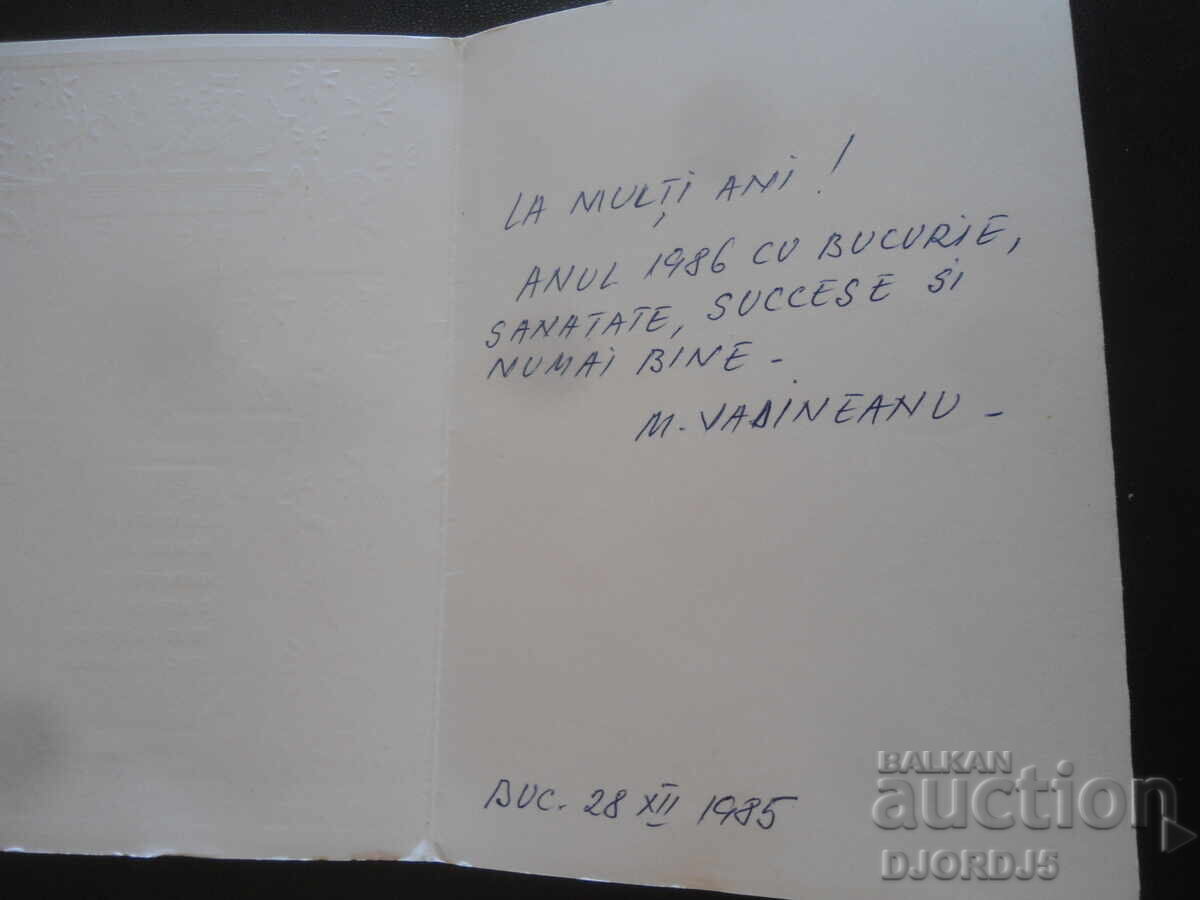 LA MULȚI ANI!
ANUL 1986 CU BUCURIE,
SANATATE, SUCCESE SI
NUMAI BINE -
M. VADINEANU -
BUC. 28 XII 1985
BALKAN
auction
DJORDJ5